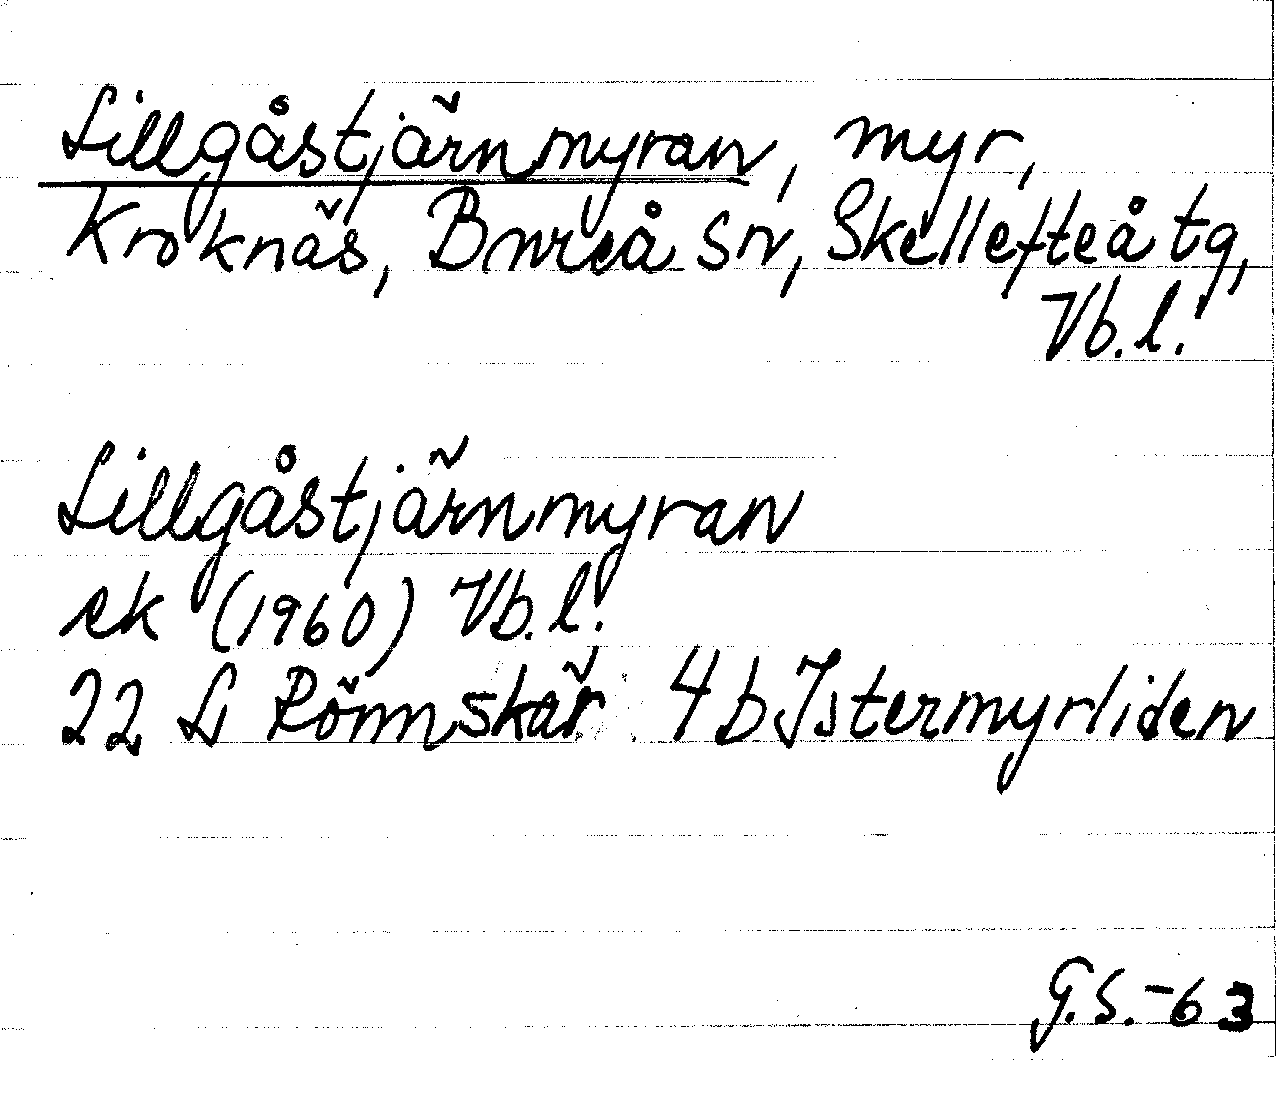 Lillgåstjärnmyran, myr,
Kroknäs, Bureå sn, Skellefteå tg,
Vb.l.
Lillgåstjärnmyran
ek (1960) Vb.l.
22 L Rönnskär 4b Istermyrliden
G.S.-63